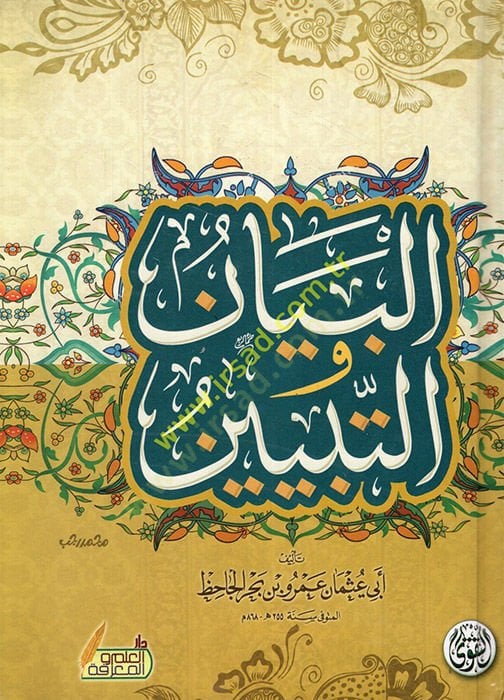 البيان
و
التبيين
www.irsad.com.tr
تأليف
أبي عثمان عمرو بن بحر الجاحظ
المتوفى سنة ٢٥٥ هـ - ٨٦٨ م
دار
العلم و
المعرفة
التقوى